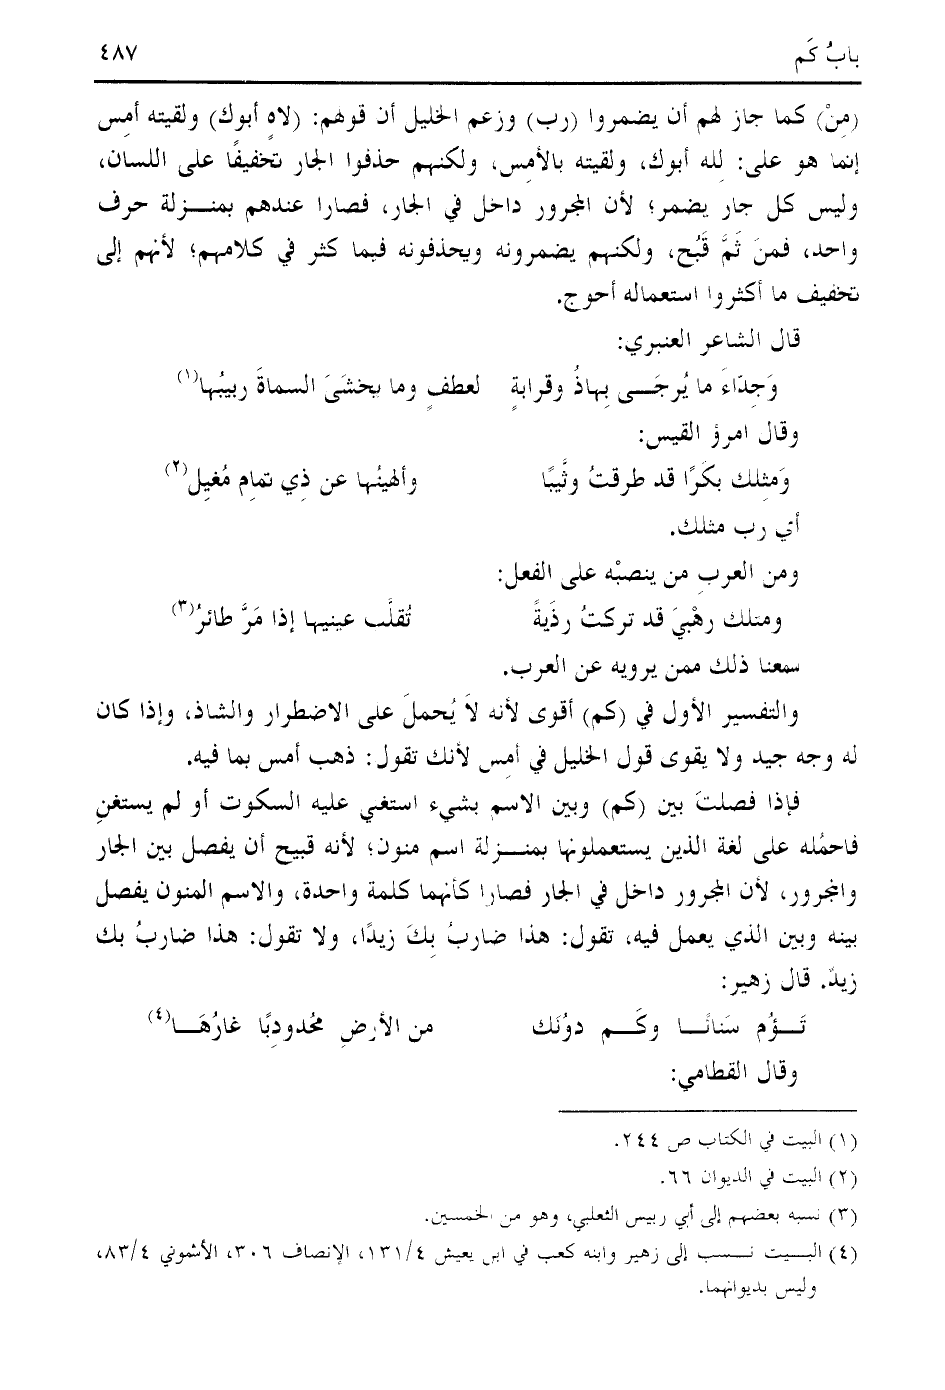 بابُ كَم ٤٨٧
(مِنْ) كما جاز لهم أن يضمروا (رب) وزعم الخليل أن قولهم: (لاهِ أبوك) ولقيته أمسِ
إنما هو على: لله أبوك، ولقيته بالأمسِ، ولكنهم حذفوا الجار تخفيفًا على اللسان،
وليس كل جار يضمر؛ لأن المجرور داخل في الجار، فصارا عندهم بمنـزلة حرف
واحد، فمنَ ثَمَّ قَبُح، ولكنهم يضمرونه ويحذفونه فيما كثر في كلامهم؛ لأنهم إلى
تخفيف ما أكثروا استعماله أحوج.
قال الشاعر العنبري:
وَجدّاءَ ما يُرجَـى بِهاذُ وقرابةٍ لعطفٍ وما يخشَىَ السماةَ ربيبُها(١)
وقال امرؤ القيس:
وَمثلِك بكَرًا قد طرقتُ وثَّيبًا وألهيتُها عن ذِي تمامٍ مُغيِل(٢)
أي رب مثلك.
ومن العربِ من ينصبْه على الفعل:
ومتلك رهْبيَ قد تركتُ رذَيةً تُقلَّب عينيها إذا مَرَّ طائرُ(٣)
سمعنا ذلك ممن يرويه عن العرب.
والتفسير الأول في (كم) أقوى لأنه لاَ يُحملَ على الاضطرار والشاذ، وإذا كان
له وجه جيد ولا يقوى قول الخليل في أمسِ لأنك تقول: ذهب أمس بما فيه.
فإذا فصلتَ بين (كم) وبين الاسم بشيء استغني عليه السكوت أو لم يستغنِ
فاحمُله على لغة الذين يستعملونها بمنـزلة اسم منون؛ لأنه قبيح أن يفصل بين الجار
والمجرور، لأن المجرور داخل في الجار فصارا كأنهما كلمة واحدة، والاسم المنون يفصل
بينه وبين الذي يعمل فيه، تقول: هذا ضاربُ بِكَ زيدًا، ولا تقول: هذا ضاربُ بك
زيدٌ. قال زهير:
تَـؤُم سَنانًـا وكَـم دوُنَك من الأرضِ مُحْدودبًا غارُهَـا(٤)
وقال القطامي:
(١) البيت في الكتاب ص ٢٤٤.
(٢) البيت في الديوان ٦٦.
(٣) نسبه بعضهم إلى أبي ربيس الثعلبي، وهو من الخمسين.
(٤) البـيت نـسب إلى زهير وابنه كعب في ابن يعيش ١٣١/٤، الإنصاف ٣٠٦، الأشموني ٨٣/٤،
وليس بديوانهما.